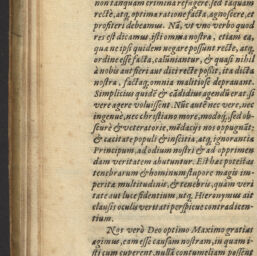 non tanquam crimina refugere, sed tãquam
rectè, atq; optima ratione facta, agnoscere, et
profiteri debeamus. Nã, vt vno verbo quod
res est dicamus, isti omnia nostra, etiam ea,
quæ ne ipsi quidem negare possunt recte, atq;
ordine esse facta, calũniantur, & quasi nihil
à nobis aut fieri aut dici rectè possit, ita dicta
nostra, factaq; omnia malitiosè deprauant.
Simplicius quidẽ & cãdidius agendũ erat, si
verè agere voluissent. Nũc autẽ nec verè, nec
ingenuè, nec christiano more, modoq;, sed ob-
scurè & veteratorie, mẽdacijs nos oppugnãt:
& cæcitate populi & inscitia, atq; ignorantia
Principum, ad odium nostri & ad opprimen
dam veritatem abutuntur. Et hæc potestas
tenebrarum & hominum stupore magis im-
peritæ multitudinis, & tenebris, quàm veri
tate aut luce fidentium, utq; Hieronymus ait
clausis oculis veritati perspicuè contradicen-
tium.
Nos verò Deo optimo Maximo gratias
agimus, eam esse causam nostram, in quam i-
sti cum cuperent, nullã contumeliam possent